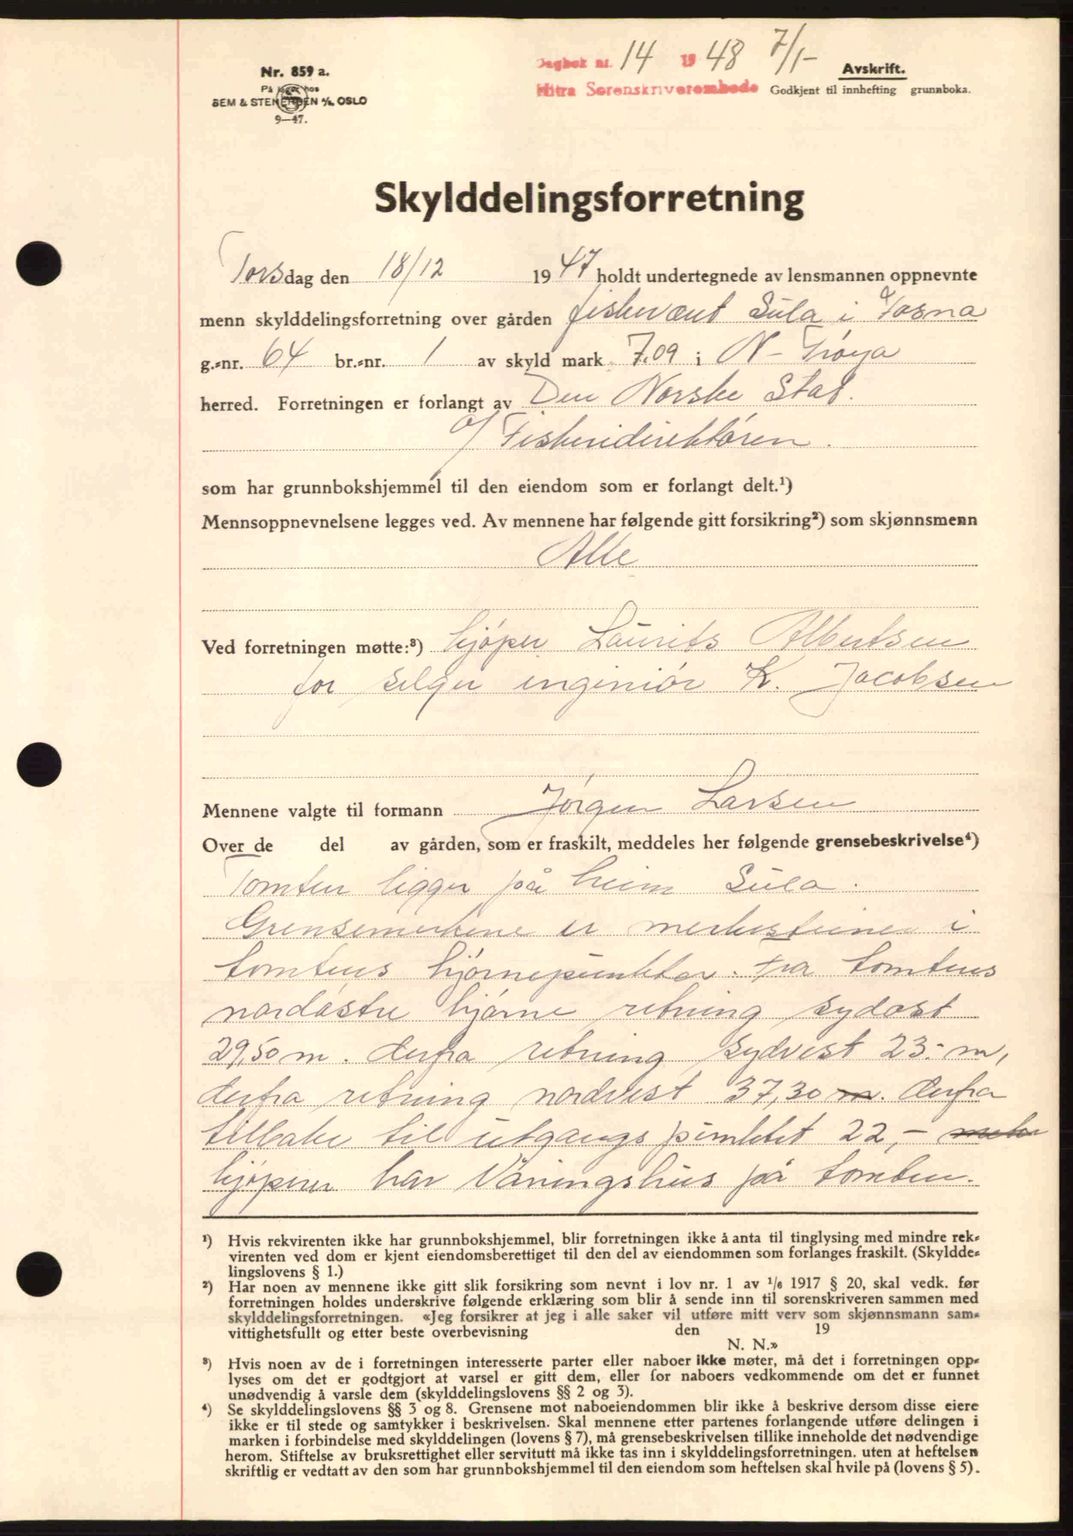 Nr. 859 a.
På lager hos
SEM & STENERSEN A/S, OSLO
9—47.
Dagbok nr. 14 1948 7/1-
Hitra Sorenskriverembede
Avskrift.
Godkjent til innhefting grunnboka.
Skylddelingsforretning
Torsdag den 18/12 1947 holdt undertegnede av lensmannen oppnevnte
menn skylddelingsforretning over gården fiskevært Sula i
g.-nr. 64 br.-nr. 1 av skyld mark 7.09 i N-Frøya
herred. Forretningen er forlangt av Den Norske Stat.
v/ Fiskeridirektøren.
som har grunnbokshjemmel til den eiendom som er forlangt delt.¹)
Mennsoppnevnelsene legges ved. Av mennene har følgende gitt forsikring²) som skjønnsmenn
Alle
Ved forretningen møtte:³) kjøper Laurits Albertsen
for selger ingeniør K. Jacobsen
Mennene valgte til formann Jørgen Larsen
Over de del av gården, som er fraskilt, meddeles her følgende grensebeskrivelse⁴)
Tomten ligger på heim Sula.
Grensemerkene er merkesteiner i
tomtens hjørnepunkter. Fra tomtens
nordøstre hjørne retning sydøst
29,50 m. derfra retning sydvest 23.- m,
derfra retning nordvest 37,30 m. derfra
tilbake til utgangspunktet 22,- meter
kjøperen har Våningshus på tomten.
¹) Hvis rekvirenten ikke har grunnbokshjemmel, blir forretningen ikke å anta til tinglysing med mindre rek-
virenten ved dom er kjent eiendomsberettiget til den del av eiendommen som forlanges fraskilt. (Skyldde-
lingslovens § 1.)
²) Har noen av mennene ikke gitt slik forsikring som nevnt i lov nr. 1 av 1/6 1917 § 20, skal vedk. før
forretningen holdes underskrive følgende erklæring som blir å sende inn til sorenskriveren sammen med
skylddelingsforretningen. «Jeg forsikrer at jeg i alle saker vil utføre mitt verv som skjønnsmann sam-
vittighetsfullt og etter beste overbevisning den 19
N. N.»
³) Hvis noen av de i forretningen interesserte parter eller naboer ikke møter, må det i forretningen opp-
lyses om det er godtgjort at varsel er gitt dem, eller for naboers vedkommende om det er funnet
unødvendig å varsle dem (skylddelingslovens §§ 2 og 3).
⁴) Se skylddelingslovens §§ 3 og 8. Grensene mot naboeiendommen blir ikke å beskrive dersom disse eiere
ikke er til stede og samtykker i beskrivelsen. Skal mennene etter partenes forlangende utføre delingen i
marken i forbindelse med skylddelingen (lovens § 7), må grensebeskrivelsen tillike inneholde det nødvendige
herom. Stiftelse av bruksrettighet eller servitutt må ikke tas inn i skylddelingsforretningen. uten at heftelsen
skriftlig er vedtatt av den som har grunnbokshjemmel til den eiendom som heftelsen skal hvile på (lovens § 5).